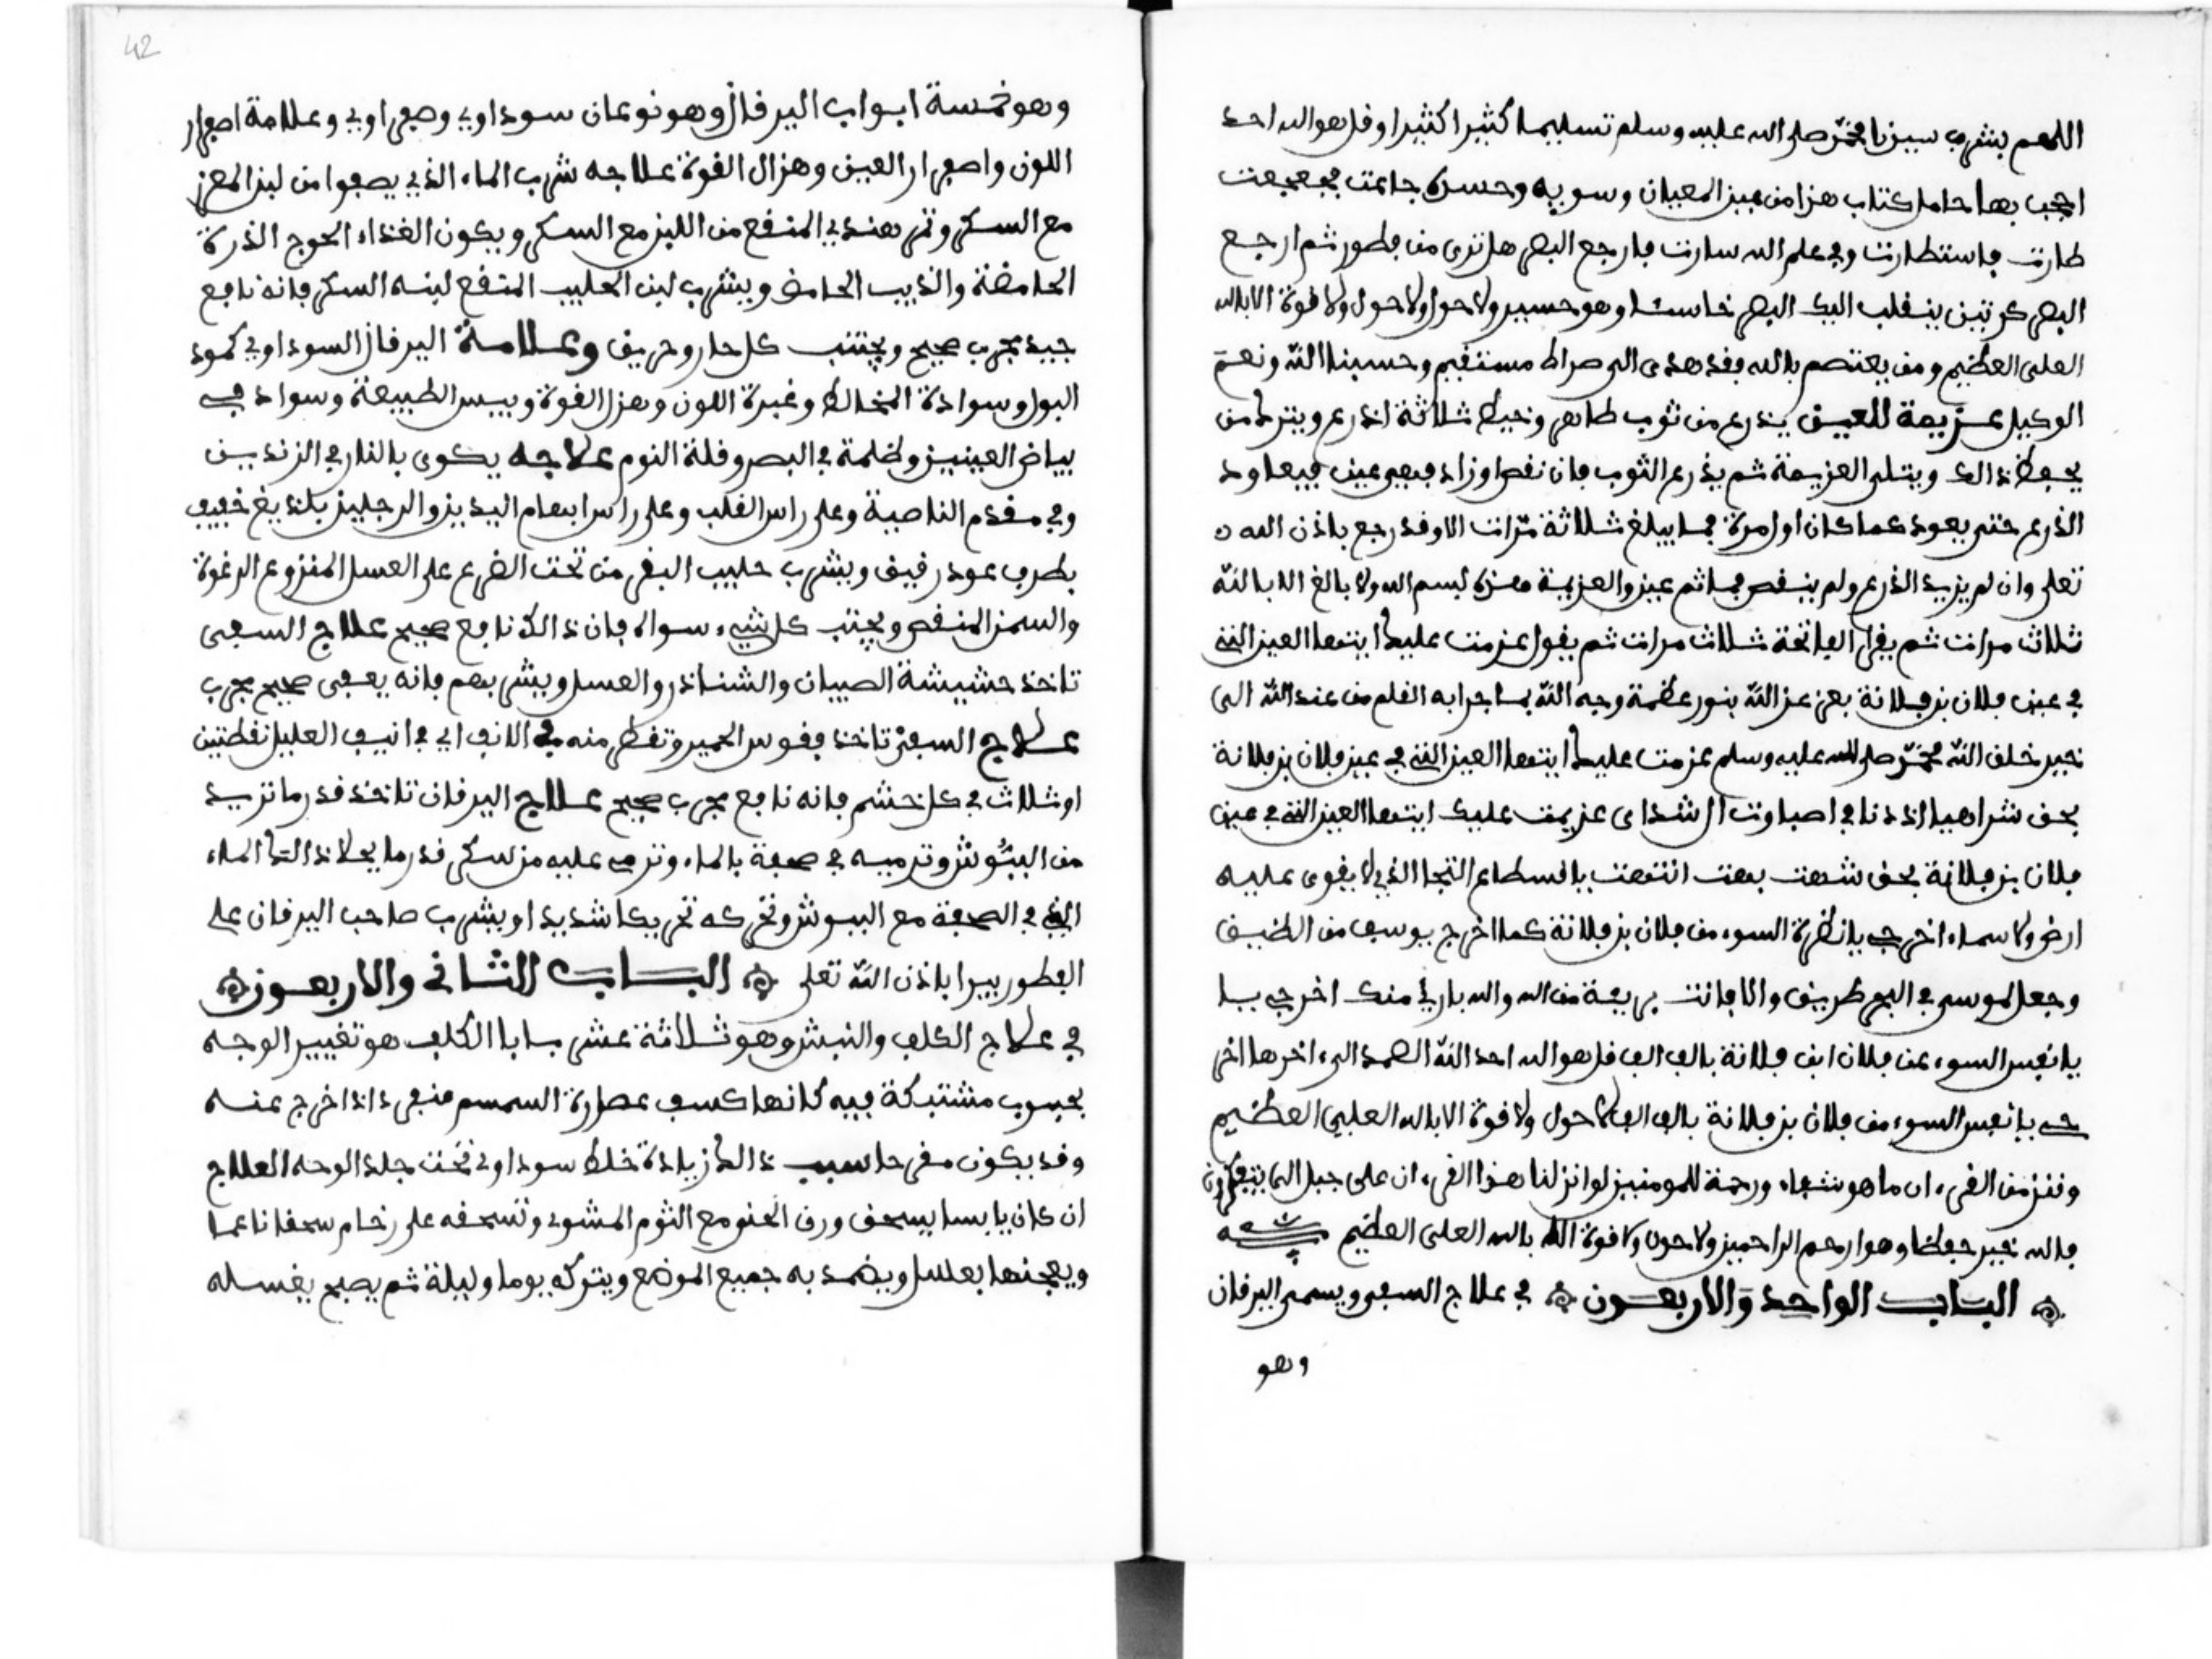 اللهم بشرف سيدنا محمد صلى الله عليه وسلم تسليما كثيرا كثيرا وقل هو الله احد
احجب بها حامل كتاب هذا من عين المعيان وسويه وحسده جاءت فجعجعت
طارت فاستطارت وفي علم الله سارت فارجع البصر هل ترى من فطور ثم ارجع
البصر كرتين ينقلب اليك البصر خاسئا وهو حسير ولا حول ولا حول ولا قوة الا بالله
العلى العظيم ومن يعتصم بالله فقد هدى الى صراط مستقيم وحسبنا الله ونعم
الوكيل عزيمة للعين يذرع من ثوب طاهر وخيط ثلاثة اذرع ويترك من
يحفظ ذالك ويتلى العزيمة ثم يذرع الثوب فان نقص او زاد فبه عين فيعاود
الذرع حتى يعود كما كان اول مرة فما يبلغ ثلاثة مرات الا وقد رجع باذن الله
تعلى وان لم يزيد الذرع ولم ينقص فما ثم عين والعزيمة هذه بسم الله ولا بالغ الا بالله
ثلاث مرات ثم يقرا الفاتحة ثلاث مرات ثم يقول عزمت عليك ايتها العين التي
في عين فلان بن فلانة بعز عز الله بنور عظمة وجه الله بما جرا به القلم من عند الله الى
خير خلق الله محمد صلى الله عليه وسلم عزمت عليك ايتها العين التي في عين فلان بن فلانة
بحق شراهيا اذدناي اصباوت ال شداى عزيمت عليك ايتها العين التي في عين
فلان بن فلانة بحق شهت بهت انتهت يا قسطاع النجا الذي لا يقوى عليه
ارض ولا سماء اخرجي يا نظرة السوء من فلان بن فلانة كما اخرج يوسف من الضيق
وجعل لموسى في البحر طريق والا فانت بريعة من الله والله باري منك اخرجي يا
يا نفس السوء عن فلان ابن فلانة بالف الف قل هو الله احد الله الصمد الى ءاخرها اخر
جي يا نفس السوء من فلان بن فلانة بالف الف لا حول ولا قوة الا بالله العلي العظيم
وننزل من القرءان ما هو شفاء ورحمة للمومنين لو انزلنا هذا القرءان على جبل الى يتفكرون
فالله خير حفظا وهو ارحم الراحمين ولا حول ولا قوة الا بالله العلى العظيم
الباب الواحد والاربعون في علاج السفير ويسمى اليرقان
وهو
42
وهو خمسة ابواب اليرقان وهو نوعان سوداوي وصفراوي وعلامة اصفرار
اللون واصفرار العين وهزال القوة علاجه شرب الماء الذي يصفوا من لبن المعز
مع السكر وتمر هندي المنقع من اللبن مع السكر ويكون الغذاء الحوج الذرة
الحامضة والذبيب الحامض ويشرب لبن الحليب المنقع لبنه السكر فانه نافع
جيد مجرب صحيح ويجتنب كل حار وحريف وعلامة اليرقان السوداوي كمود
البول وسوادة المخالط وغبرة اللون وهزل القوة ويبس الطبيعة وسواد في
بياض العينين وظلمة في البصر وقلة النوم علاجه يكوى بالنار في الزندين
وفي مقدم الناصية وعلى راس القلب وعلى راس ابهام اليدين والرجلين بلذيغ خفيف
بطرف عود رقيق ويشرب حليب البقر من تحت الضرع على العسل المنزوع الرغوة
والسمن المنقص ويجتنب كل شيء سواه فان ذالك نافع صحيح علاج السفير
تاخذ حشيشة الصبيان والشناذر والعسل ويشربهم فانه يعفى صحيح مجرب
علاج السفير تاخذ فقوس الحمير وتقطر منه في الانف اي في انيف العليل نقطتين
او ثلاث في كل خشم فانه نافع مجرب صحيح علاج اليرقان تاخذ قدر ما تريد
من الببوش وترميه في صحفة بالماء وترمي عليه من سكر قدر ما يحلا ذالك الماء
الذي في الصحفة مع الببوش وتحركه تحريكا شديدا ويشرب صاحب اليرقان على
الفطور يبرا باذن الله تعلى الباب الثاني والاربعون
في علاج الكلف والنبش وهو ثلاثة عشر بابا الكلف هو تغيير الوجه
بحبوب مشتبكة فيه كانها كسف عصارة السمسم منفردا اذا خرج عنه
وقد يكون مقرحا سبب ذالك زيادة خلط سوداوي تحت جلد الوجه العلاج
ان كان يابسا يسحق ورق الحنو مع الثوم المشوي وتسحقه على رخام سحقا ناعما
ويعجنها بعسل ويضمد به جميع الموضع ويتركه يوما وليلة ثم يصبح يغسله